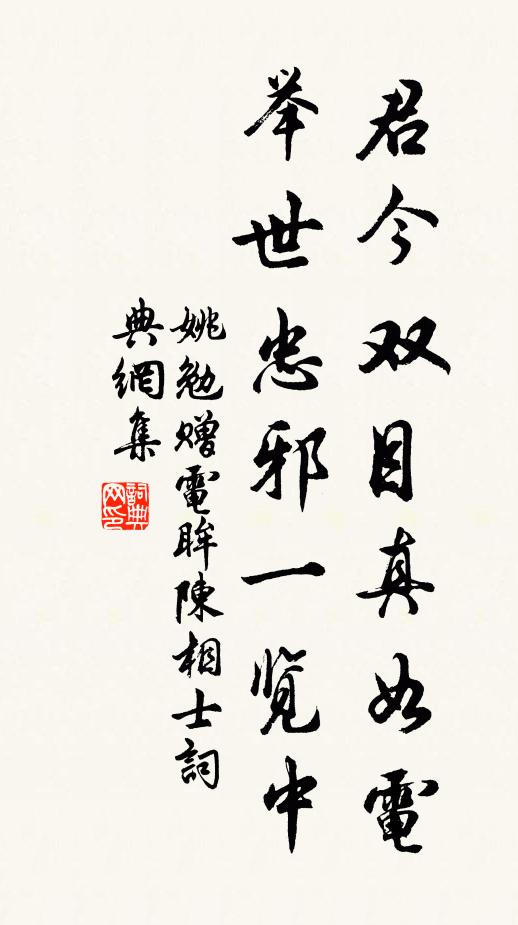 君今双目真如電
举世忠邪一览中
姚勉赠電眸陳相士詞
典網集
詞典
网印